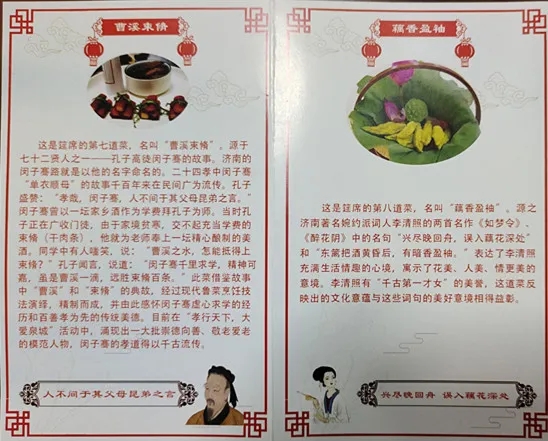 曹溪束脩
这是筵席的第七道菜,名叫“曹溪束脩”。源于
七十二贤人之一——孔子高徒闵子骞的故事。济南的
闵子骞路就是以他的名字命名的。二十四孝中闵子骞
“单衣顺母”的故事千百年来在民间广为流传。孔子
盛赞:“孝哉,闵子骞,人不间于其父母昆弟之言。”
闵子骞曾以一坛家乡酒作为学费拜孔子为师。当时孔
子正在广收门徒,由于家境贫寒,交不起充当学费的
束脩(干肉条),他就为老师奉上一坛精心酿制的美
酒。同学中有人嗤笑,说:“曹溪之水,怎能抵得上
束脩?”孔子闻言,说道:“闵子骞千里求学,精神可
嘉,虽是曹溪一滴,远胜束脩百条。”此菜借鉴故事
中“曹溪”和“束脩”的典故,经过现代鲁菜烹饪技
法演绎,精制而成,并由此感怀闵子骞虚心求学的经
历和百善孝为先的传统美德。目前在“孝行天下,大
爱泉城”活动中,涌现出一大批崇德向善、敬老爱老
的模范人物,闵子骞的孝道得以千古流传。
人不间于其父母昆弟之言
藕香盈袖
这是筵席的第八道菜,名叫“藕香盈袖”。源之
济南著名婉约派词人李清照的两首名作《如梦令》、
《醉花阴》中的名句“兴尽晚回舟,误入藕花深处”
和“东篱把酒黄昏后,有暗香盈袖。”表达了李清照
充满生活情趣的心境,寓示了花美、人美、情更美的
意境。李清照有“千古第一才女”的美誉,这道菜反
映出的文化意蕴与这些词句的美好意境相得益彰。
兴尽晚回舟 误入藕花深处